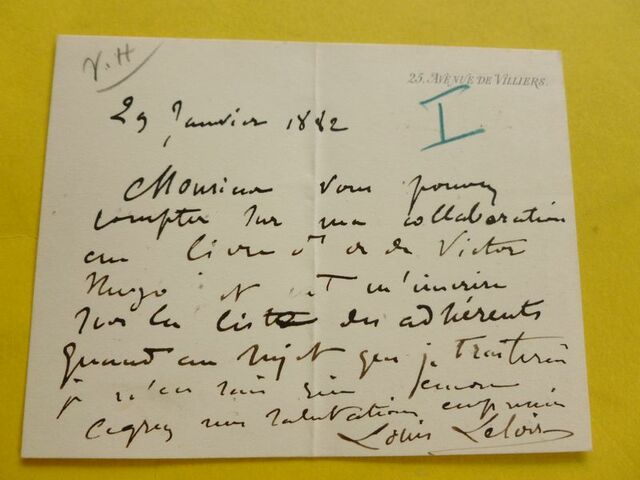 V.H
25, AVENUE DE VILLIERS.
I
29 Janvier 1882
Monsieur vous pouvez
compter sur ma collaboration
au livre d'or de Victor
Hugo et m'inscrire
sur la liste des adhérents
quand au sujet que je traiterai
je n'en sais rien encore
agréez mes salutations empressées
Louis Leloir